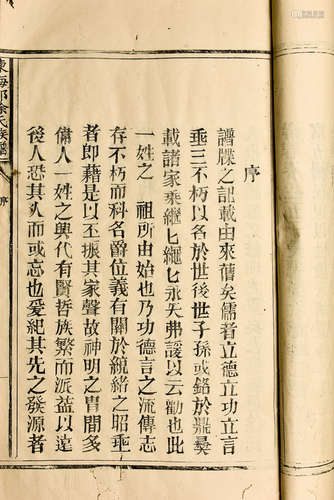 序
譜牒之記載由來舊矣儒者立德立功立言
垂三不朽以名於世後世子孫或銘於鼎彝
載諸家乘繼匕繩匕永矢弗諼以云勸也此
一姓之　祖所由始也乃功德言之流傳志
存不朽而科名爵位義有關於統緒之昭垂
者即藉是以丕振其家聲故神明之冑間多
偉人一姓之興代有賢哲族繁而派益以遠
後人恐其久而或忘也爰紀其先之發源者
東海郡徐氏族譜
序